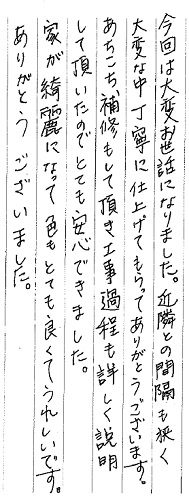 今回は大変お世話になりました。近隣との間隔も狭く
大変な中丁寧に仕上げてもらってありがとうございます。
あちこち補修もして頂き工事過程も詳しく説明
して頂いたのでとても安心できました。
家が綺麗になって色もとても良くてうれしいです。
ありがとうございました。